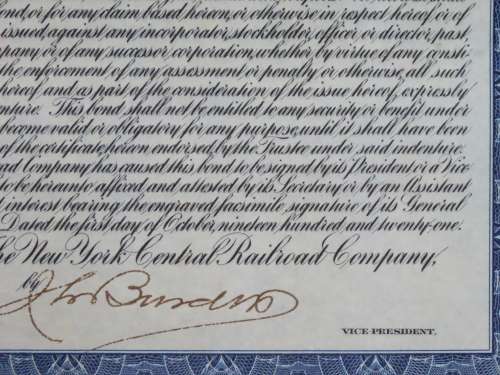 ond, or for any claim based hereon, or otherwise in respect hereof, or of
issued, against any incorporator, stockholder, officer or director, past,
pany or of any successor corporation, whether by virtue of any consti-
the enforcement of any assessment or penalty or otherwise, all such
hereof and as part of the consideration of the issue hereof, expressly
enture. This bond shall not be entitled to any security or benefit under
become valid or obligatory for any purpose, until it shall have been
of the certificate hereon endorsed by the Trustee under said indenture.
ad Company has caused this bond to be signed by its President or a Vice
to be hereunto affixed, and attested by its Secretary or by an Assistant
interest bearing the engraved facsimile signature of its General
Dated the first day of October, nineteen hundred and twenty-one.
he New York Central Railroad Company,
by
VICE PRESIDENT.